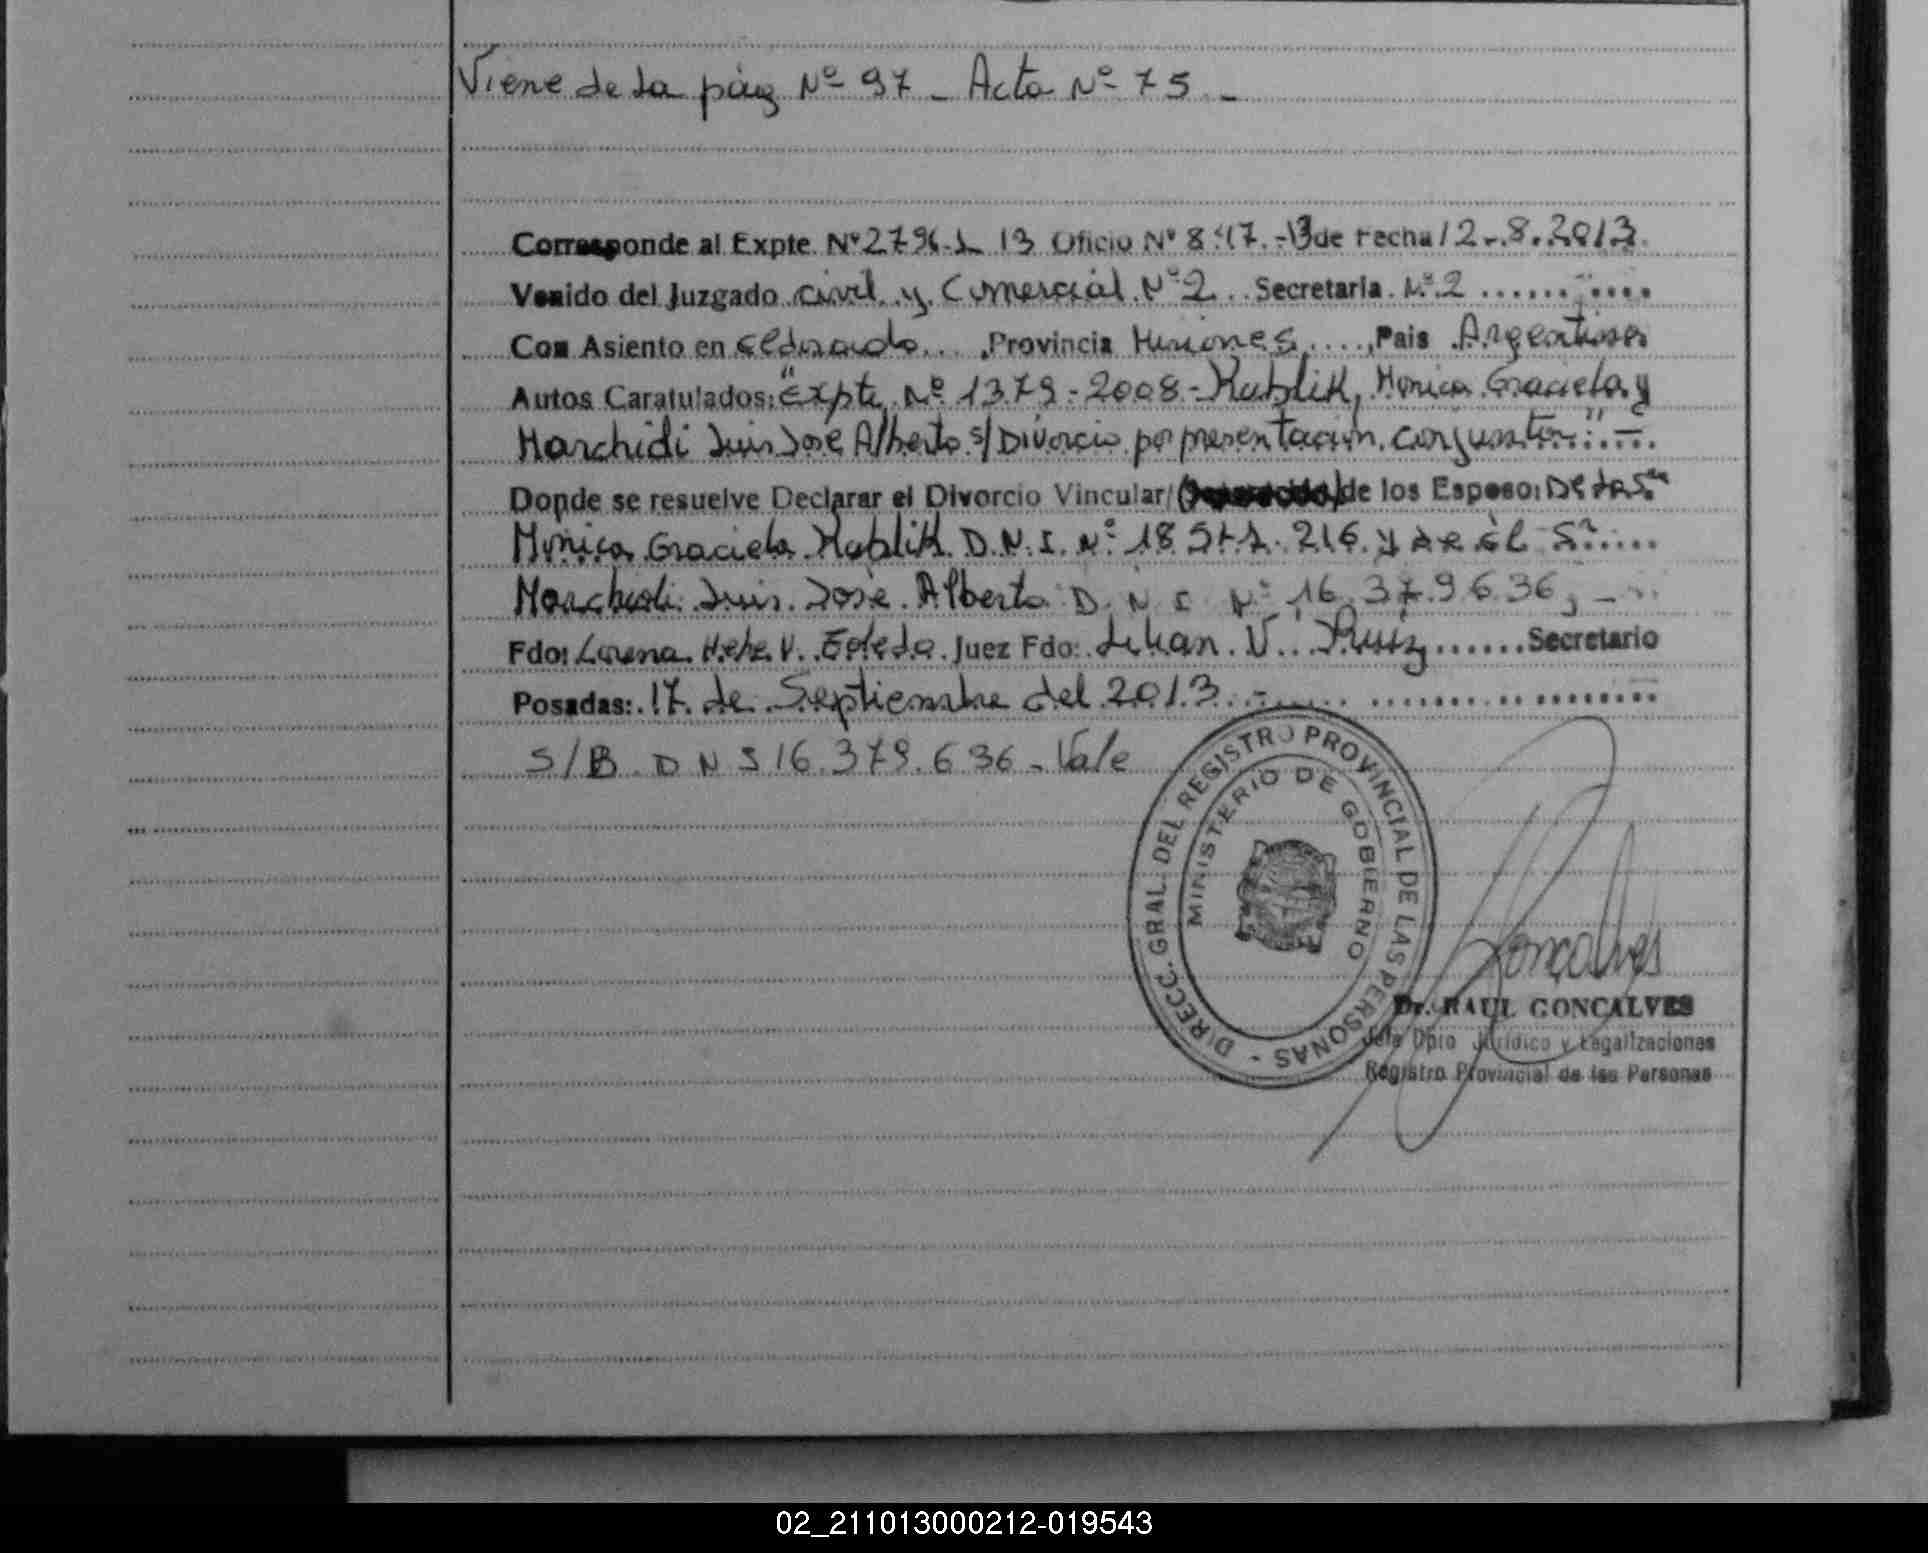 Viene de la pág Nº 97 - Acta Nº 75 -
Corresponde al Expte Nº 2796-L 13 Oficio Nº 847.-13 de fecha 12-.8.2013.
Venido del Juzgado civil y Comercial Nº 2 Secretaria Nº 2
Con Asiento en eldorado Provincia Misiones, Pais Argentina
Autos Caratulados: "Expte Nº 1379-2008- Kublik, Monica Graciela y
Marchioli Luis José Alberto s/Divorcio por presentacion conjunta" -.
Donde se resuelve Declarar el Divorcio Vincular/ de los Esposo: De la Sra
Monica Graciela Kublik D.N.I. Nº 216 y de él Sr
Marchioli Luis José Alberto D.N.I Nº 16.379.636, -
Fdo: Lorena Juez Fdo: Lilian V. Ruiz Secretario
Posadas: 17 de Septiembre del 2013 -
S/B. D N I 16.379.636 - Vale
DIRECC. GRAL. DEL REGISTRO PROVINCIAL DE LAS PERSONAS -
MINISTERIO DE GOBIERNO
Goncalves
Dr. RAUL GONCALVES
Jefe Dpto Jurídico y Legalizaciones
Registro Provincial de las Personas
02_211013000212-019543